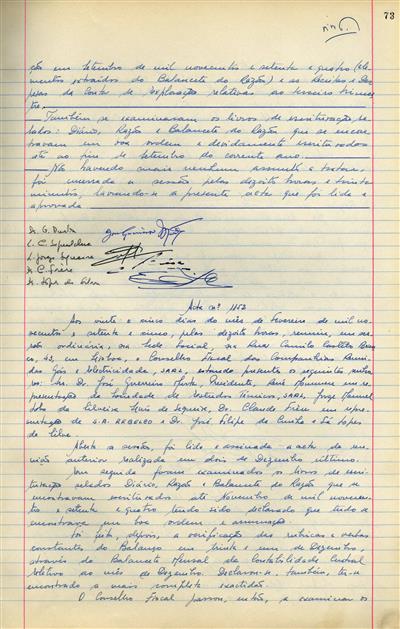 73
ção em Setembro de mil novecentos e setenta e quatro (ele-
mentos extraídos do Balancete do Razão) e as Receitas e Des-
pesas da Conta de Exploração relativas ao terceiro trimes-
tre.
Também se examinaram os livros de escrituração se-
lados: Diário, Razão e Balancete do Razão que se encon-
travam em boa ordem e devidamente escriturados
até ao fim de Setembro do corrente ano.
Não havendo mais nenhum assunto a tratar,
foi encerrada a sessão pelas dezoito horas e trinta
minutos, lavrando-se a presente acta que foi lida e
aprovada
Acta nº 1153
Aos vinte e cinco dias do mês de Fevereiro de mil no-
vecentos e setenta e cinco, pelas dezoito horas, reuniu, em ses-
são ordinária, na sede social, na Rua Camilo Castelo Bran-
co, 43, em Lisboa, o Conselho Fiscal das Companhias Reuni-
das Gás e Electricidade, SARL, estando presentes os seguintes mem-
bros: Sr. Dr. José Guerreiro Presidente, René em re-
presentação da Sociedade de Estudos Técnicos, SARL, Jorge Manuel
da Silveira de Sequeira, Dr. Claude em repre-
sentação de S.A. REGELCO e Dr. José Filipe da Cunha e Sá Lopes
da Silva.
Aberta a sessão, foi lida e assinada a acta da reu-
nião anterior realizada em dois de Dezembro último.
Em seguida foram examinados os livros de escri-
turação selados Diário, Razão e Balancete do Razão que se
encontravam escriturados até Novembro de mil novecen-
tos e setenta e quatro tendo sido declarado que tudo se
encontrava em boa ordem e arrumação.
Foi feita, depois, a verificação das rubricas e verbas
constantes do Balanço em trinta e um de Dezembro,
através do Balancete Mensal da Contabilidade Central
relativo ao mês de Dezembro. Declarou-se, também, ter-se
encontrado a mais completa exactidão.
O Conselho Fiscal passou, então, a examinar os